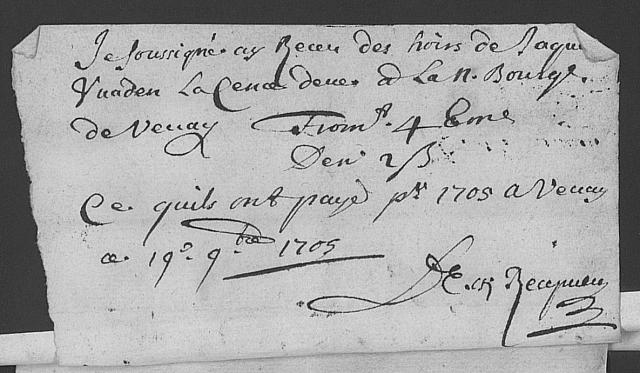 Je soussigné ay Receu des hoirs de Jaque
Vuaden La Cense deue a La N. Bourg.
de Vevay From.t 4 Eme
Den. 2 ß
Ce quils ont payé p.r 1705 a Vevay
ce 19.e 9.bre 1705